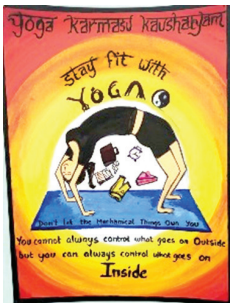 Yoga Karmasu Kaushalyam
Stay fit with
YOGA
Don't let the Mechanical Things Own You
You cannot always control what goes on Outside
but you can always control what goes on
Inside